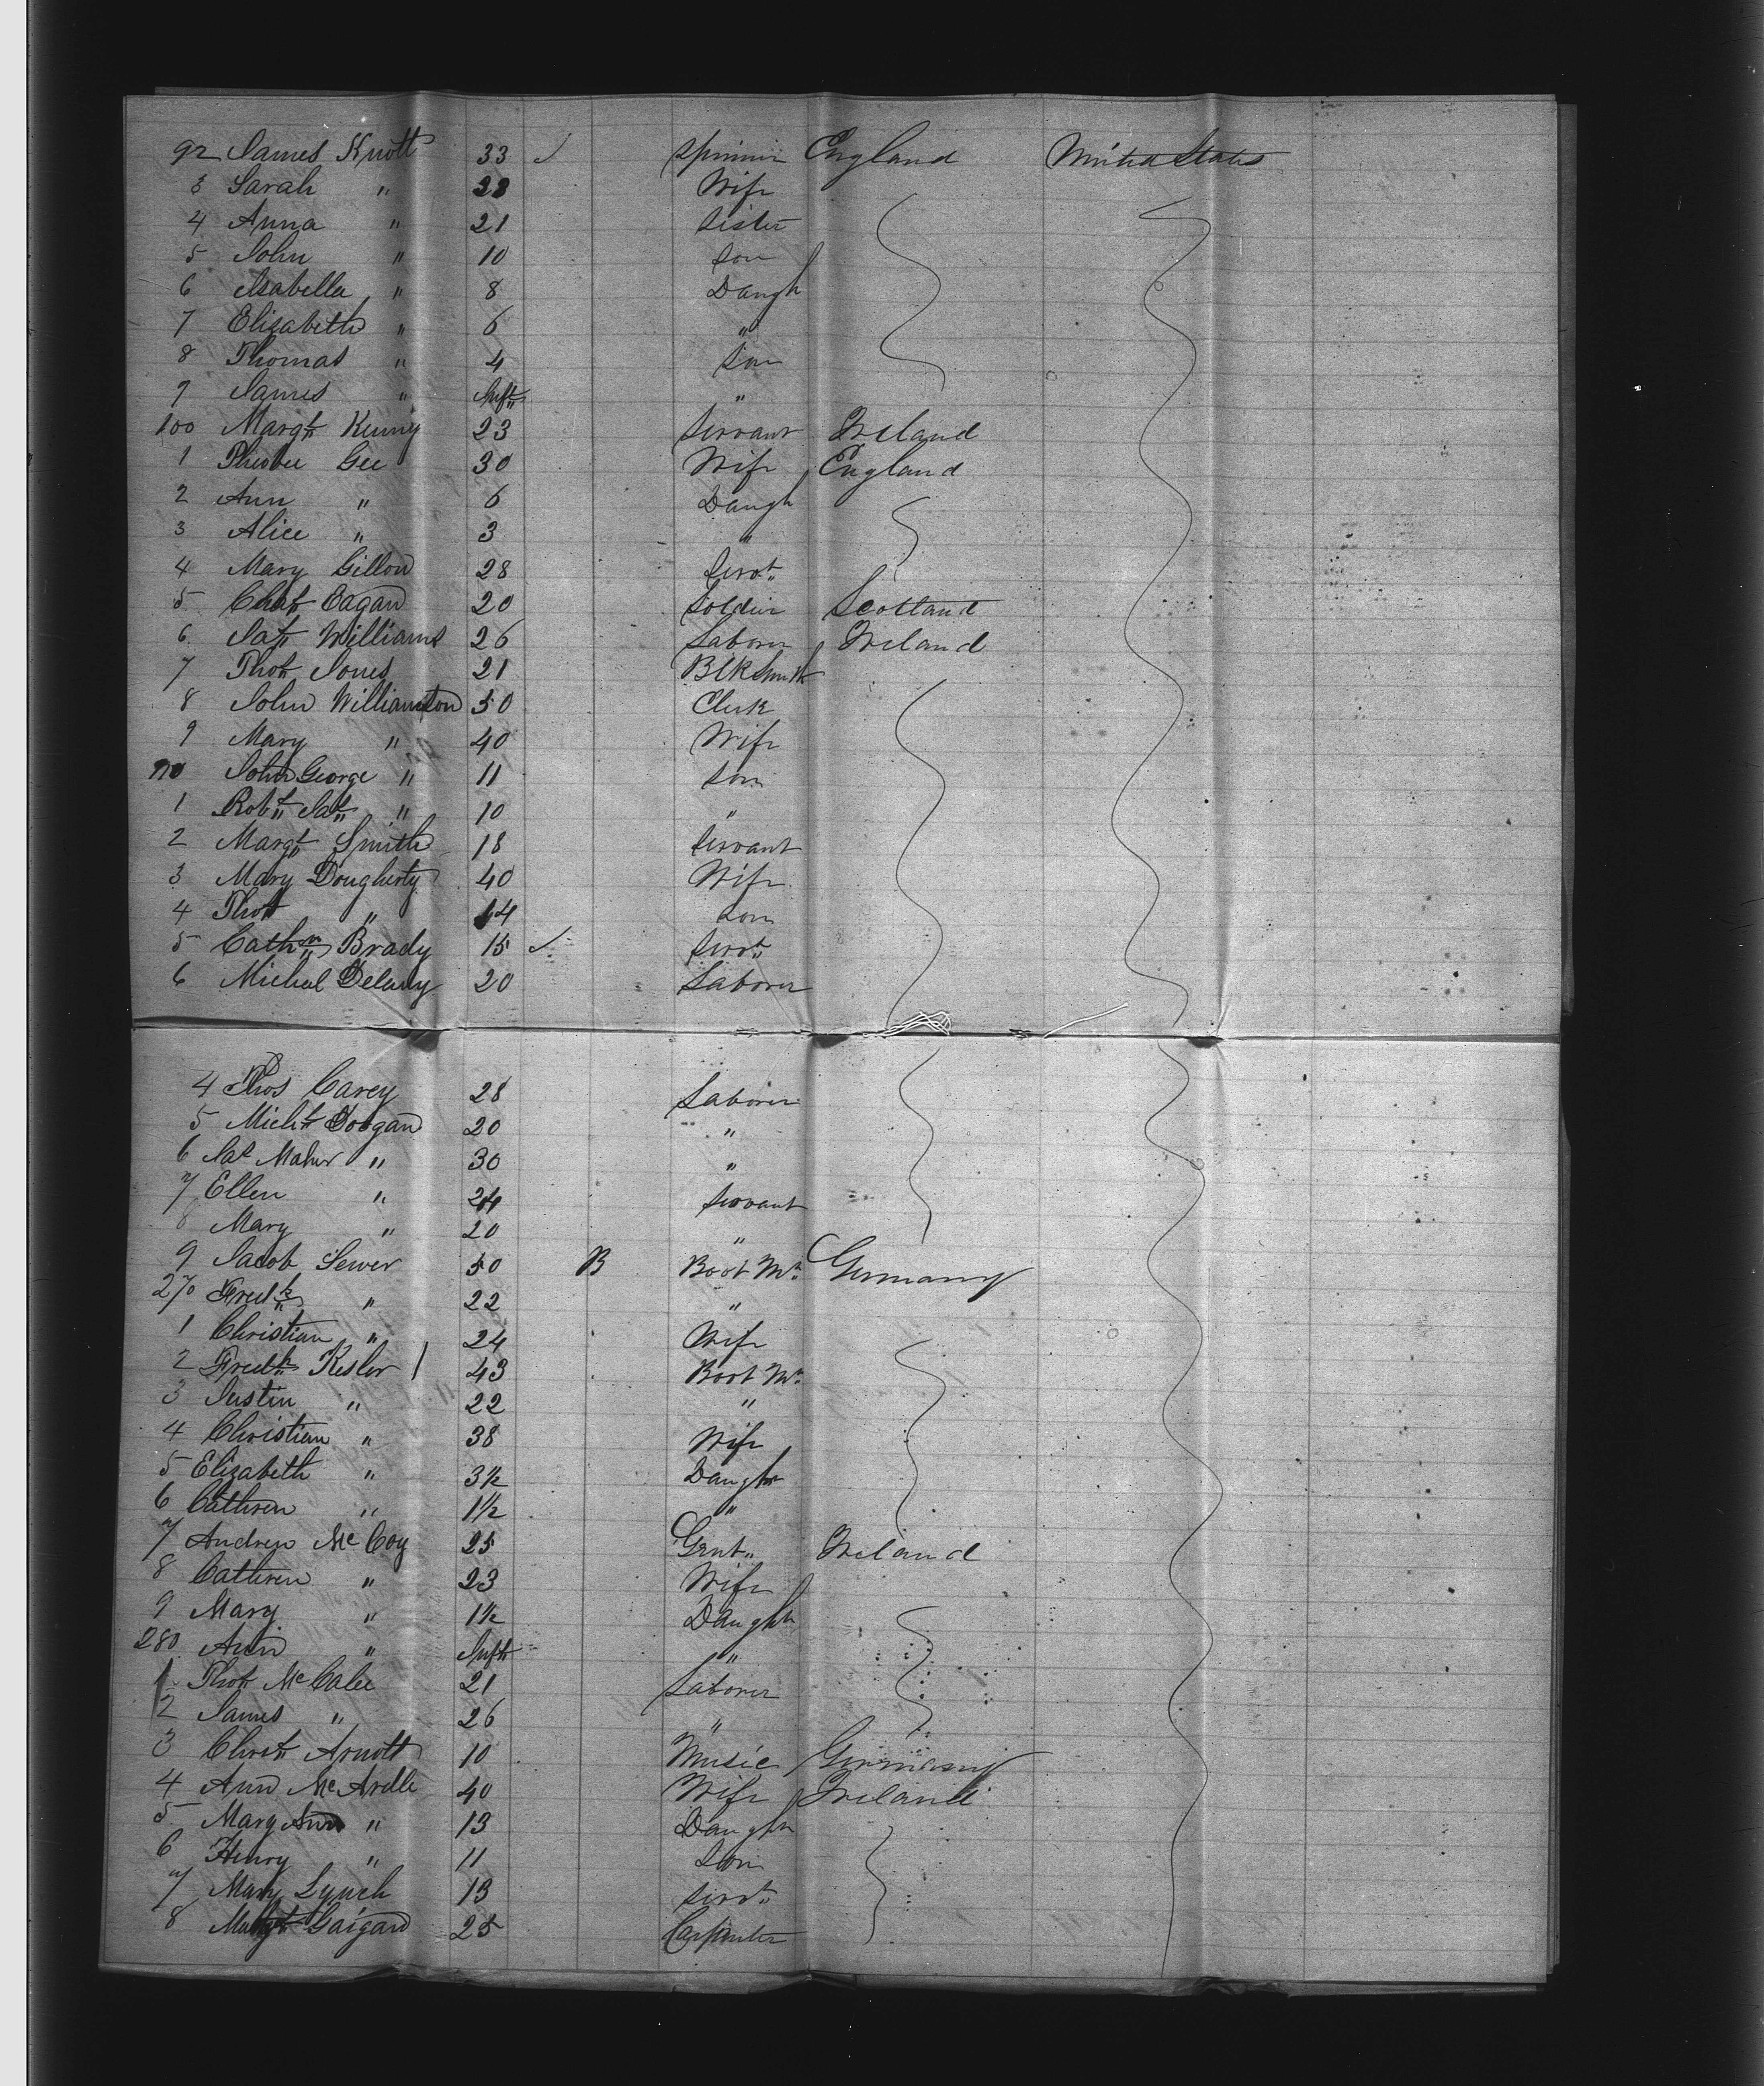 92 James Knott 33 ✓ Spinner England United States
3 Sarah " 28 Wife
4 Anna " 21 Sister
5 John " 10 Son
6 Isabella " 8 Daugh
7 Elizabeth " 6 "
8 Thomas " 4 Son
9 James " Inft "
100 Margt Kenny 23 Servant Ireland
1 Pheobe Gee 30 Wife England
2 Ann " 6 Daugh
3 Alice " 3 "
4 Mary Gillon 28 Servt
5 Chas Eagan 20 Soldier Scotland
6 Jas Williams 26 Laborer Ireland
7 Thos Jones 21 BlkSmith
8 John Williamson 50 Clerk
9 Mary " 40 Wife
110 John George " 11 Son
1 Robt Jas " 10 "
2 Margt Smith 18 Servant
3 Mary Dougherty 40 Wife
4 Thos " 14 Son
5 Cathn Brady 15 ✓ Servt
6 Michal Delany 20 Laborer
4 Thos Carey 28 Laborer
5 Michl 20 "
6 Jas Maher " 30 "
7 Ellen " 24 Servant
8 Mary " 20 "
9 Jacob Sewer 50 B Boot Mr Germany
270 Fredk " 22 "
1 Christian " 24 Wife
2 Fredk Keslor 43 Boot Mr
3 Justin " 22 "
4 Christian " 38 Wife
5 Elizabeth " 3½ Daughr
6 Cathren " 1½ "
7 Andrew McCoy 25 Gent Ireland
8 Cathren " 23 Wife
9 Mary " 1½ Daughr
280 Ann " Inft "
1 Thos McCabe 21 Laborer
2 James " 26 "
3 Christ Arnott 10 Music Germany
4 Ann McArdle 40 Wife Ireland
5 Mary Ann " 13 Daughr
6 Henry " 11 Son
7 Mary Lynch 13 Servt
8 Gaigan 25 Carpenter